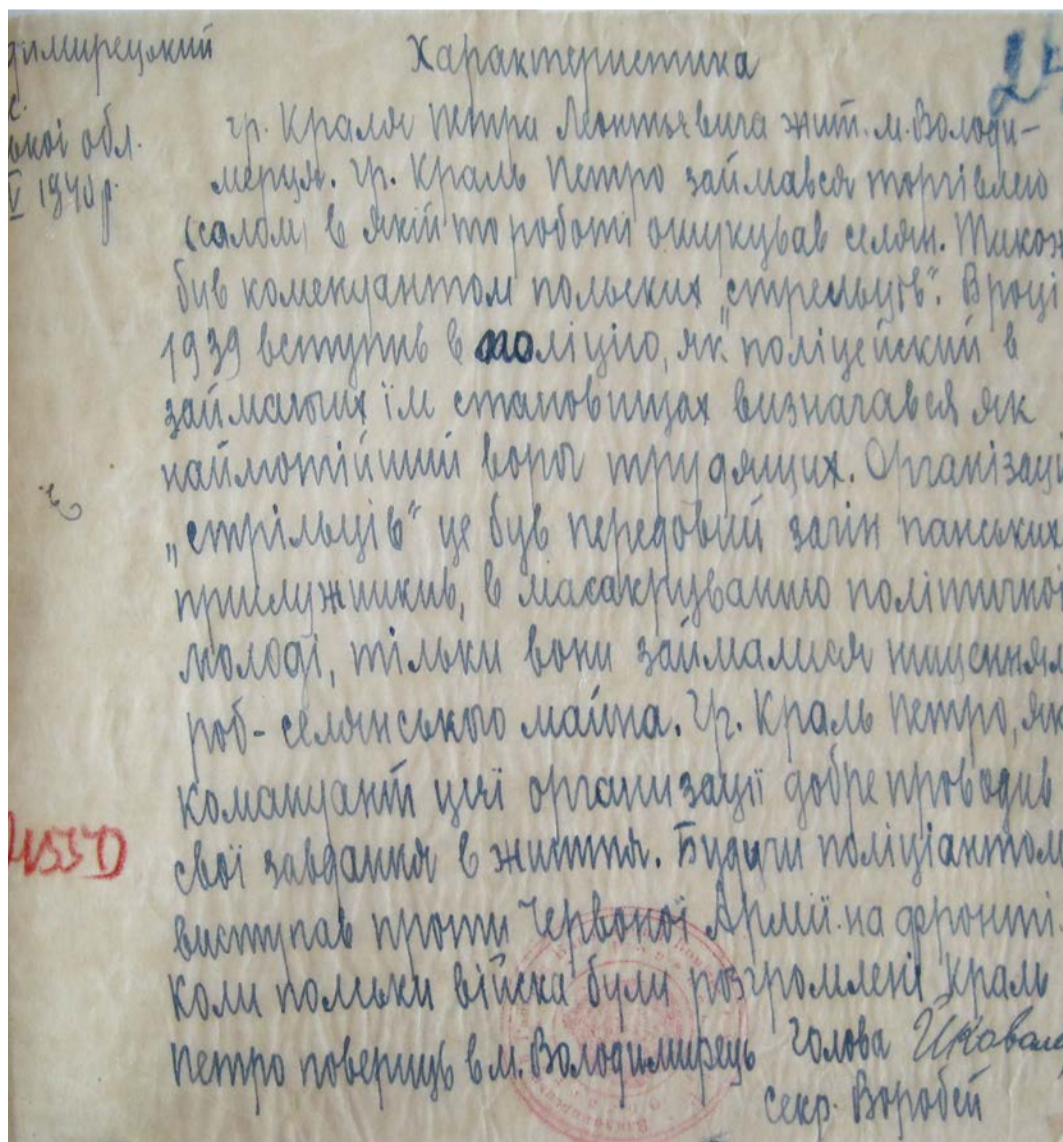 димирецький
с.
ської обл.
V 1940 р.
Характеристика
гр. Краля Петра Леонтьевича жит. м. Володи-
мерця. Гр. Краль Петро займався торгівлею
(салом) в якій то роботі ошукував селян. Також
був комендантом польских „стрельців“. В році
1939 вступив в поліцію, як поліцейский в
займаных їм становищах визначався як
наймотійший ворог трудящих. Організаці
„стрільців“ це був передовий загін панських
прислужників, в масакруванню політичної
молоді, тільки вони займалися нищенням
роб-селянського майна. Гр. Краль Петро, як
командант цієї организації добре проводив
свої завдання в життя. Будучи поліціантом
виступав проти Червоної Армії на фронті.
Коли польки війска були розгромлені Краль
Петро повернув в м. Володимирець Голова
секр. Воробей